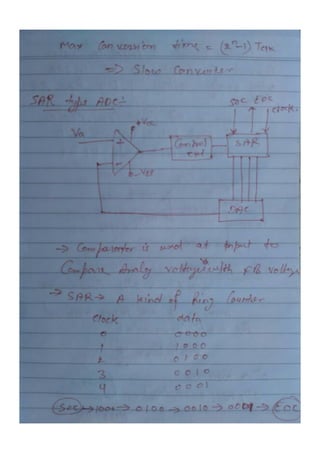 Max Conversion time = (2ⁿ-1) Tclk
=> Slow Converter
SAR type ADC:-
SOC EOC
clock
+Vcc
Va
+
-
-VEE
Control
SAR
DAC
-> Comparator is used at input to
Compare Analog voltage with FB voltage
-> SAR -> A kind of Ring Counter
Clock data
0 0000
1 1000
2 0100
3 0010
4 0001
SOC -> 1000 -> 0100 -> 0010 -> 0001 -> EOC